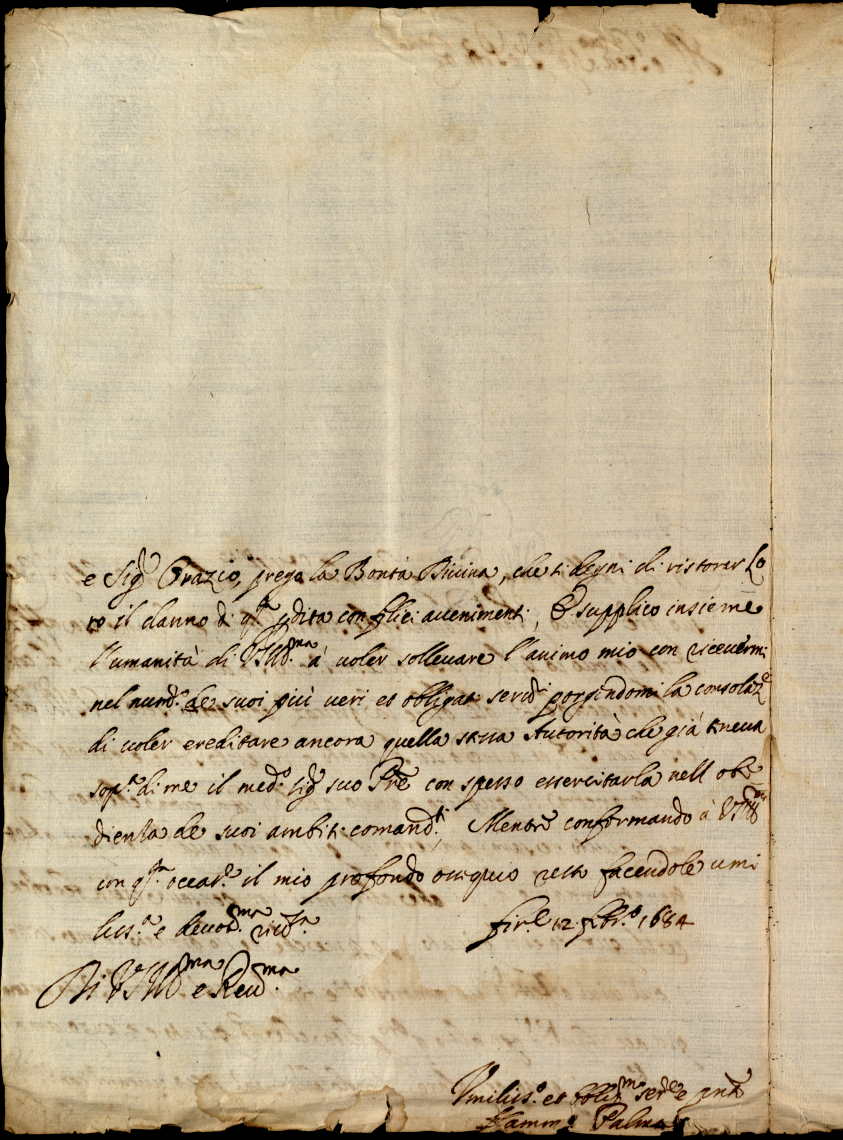 e Sig.r Orazio, prego la Bontà Divina, che si degni di ristorar Lo
ro il danno di q.sta p̱dita con felici avvenimenti, E supplico insieme
l'umanità di VSIll.ma à voler sollevare l'animo mio con ricevermi
nel num.o de suoi più veri et obligati serv.ri porgendomi la consolaz.e
di voler ereditare ancora quella stessa Autorità che già teneva
sop.a di me il med.o Sig.r suo Pre con spesso essercitarla nell obe
dienza de suoi ambiti comand.ti, Mentre confermando à VSIll.ma
con q.sta occas.e il mio profondo ossequio resto facendole umi
liss.a e devot.ma river.za
fir.e 12 febr.o 1684
Di V.S.Ill.ma e Rev.ma
Umiliss.o et obblig.mo ser.re e
Palma